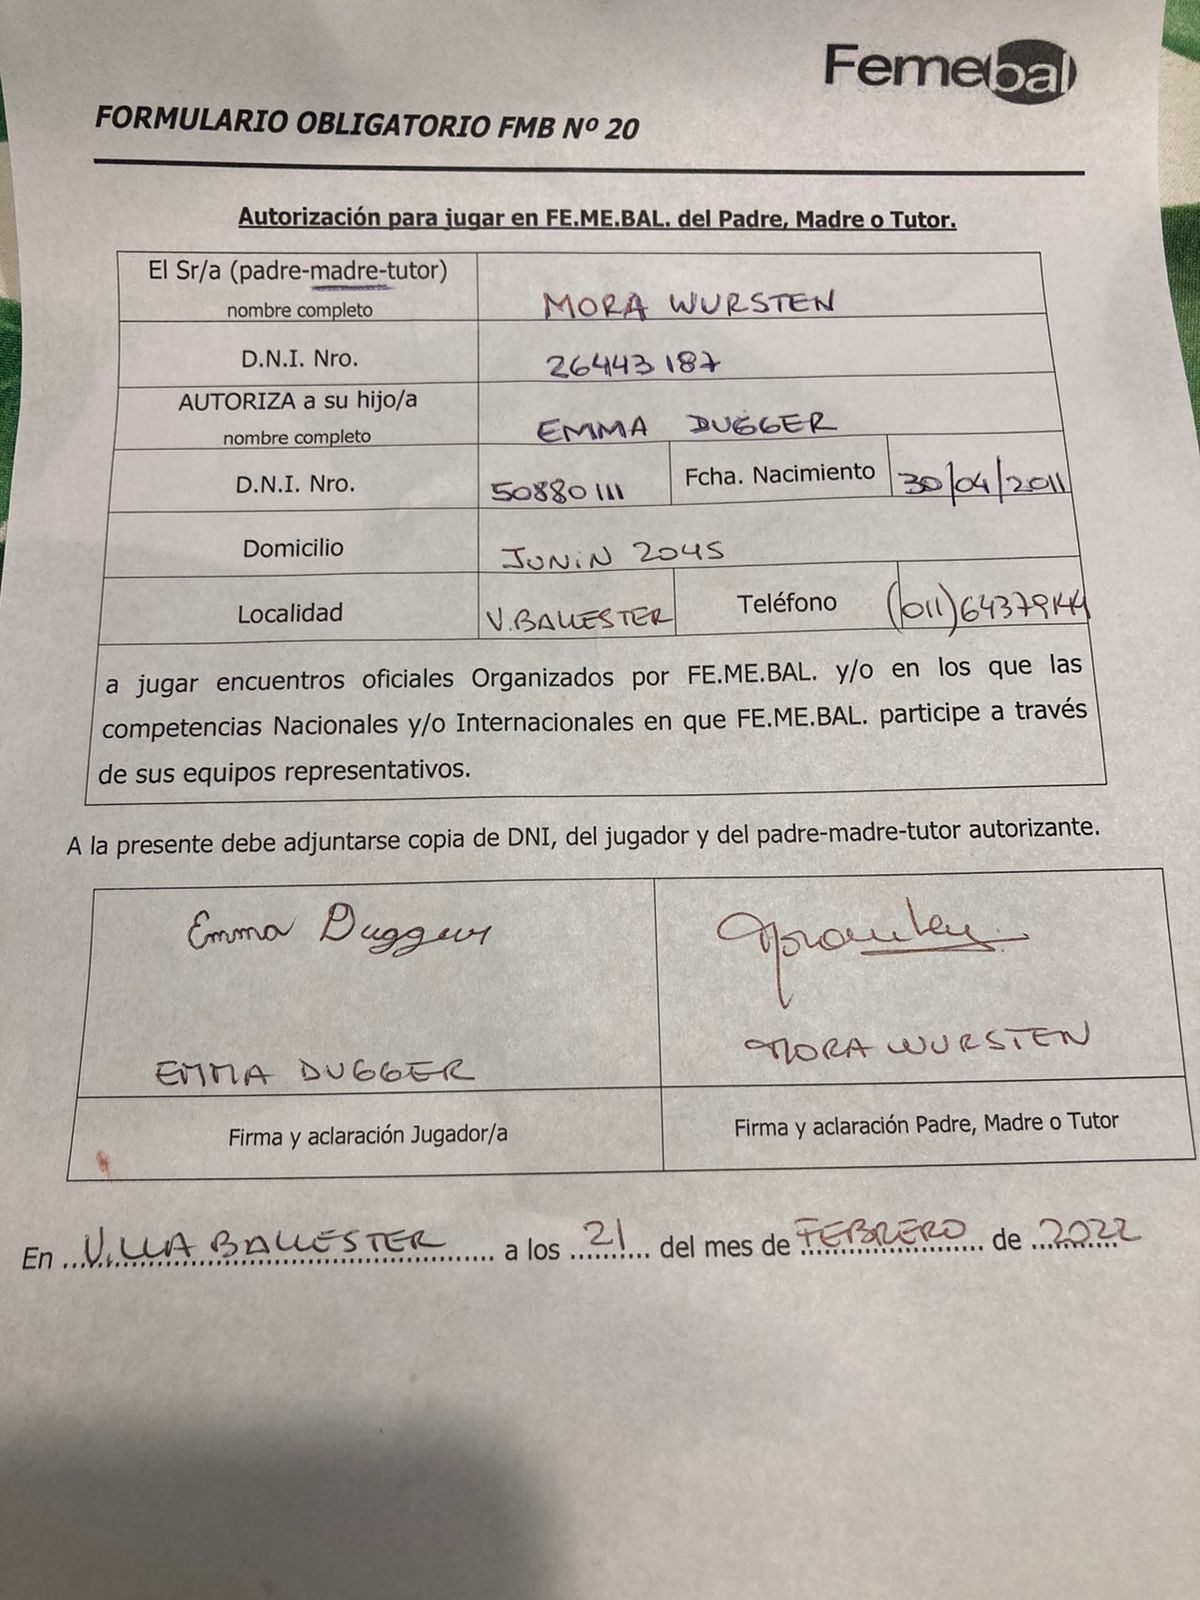 Femebal
FORMULARIO OBLIGATORIO FMB Nº 20
Autorización para jugar en FE.ME.BAL. del Padre, Madre o Tutor.
El Sr/a (padre-madre-tutor)
nombre completo
MORA WURSTEN
D.N.I. Nro.
26443187
AUTORIZA a su hijo/a
nombre completo
EMMA DUGGER
D.N.I. Nro.
50880111
Fcha. Nacimiento
30/04/2011
Domicilio
JUNIN 2045
Localidad
V.BALLESTER
Teléfono
(011)64379144
a jugar encuentros oficiales Organizados por FE.ME.BAL. y/o en los que las
competencias Nacionales y/o Internacionales en que FE.ME.BAL. participe a través
de sus equipos representativos.
A la presente debe adjuntarse copia de DNI, del jugador y del padre-madre-tutor autorizante.
Emma Dugger
EMMA DUGGER
MORA WURSTEN
Firma y aclaración Jugador/a
Firma y aclaración Padre, Madre o Tutor
En VILLA BALLESTER a los 21 del mes de FEBRERO de 2022